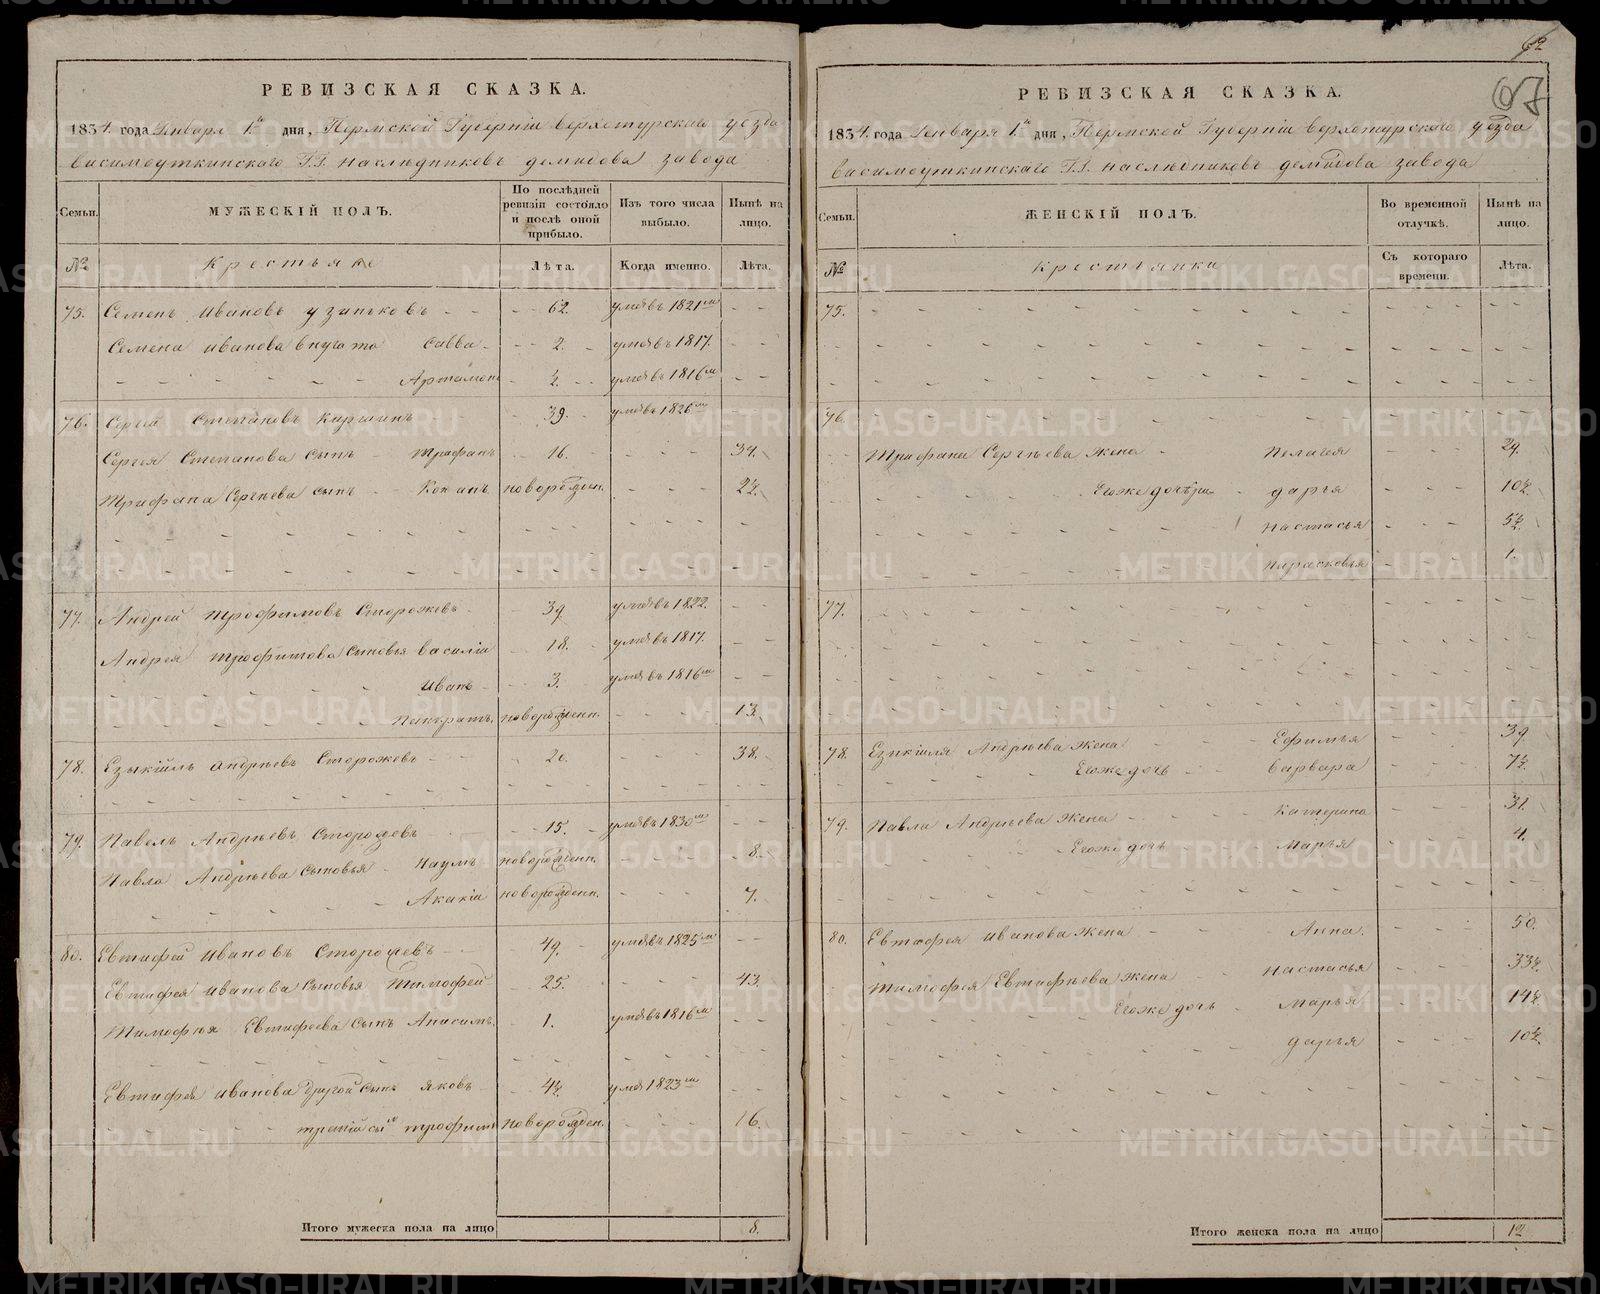 РЕВИЗСКАЯ СКАЗКА.
1834. года Генваря 1го дня, Пермской Губерніи верхотурскаго уезда
висимоуткинскаго Г.Г. наслѣдниковъ демидова завода
Семьи.
МУЖЕСКІЙ ПОЛЪ.
По послѣдней ревизіи состояло и послѣ оной прибыло.
Изъ того числа выбыло.
Нынѣ на лицо.
№
Крестьяне
Лѣта.
Когда именно.
Лѣта.
75. Семенъ Ивановъ 62. умѣ въ 1821м
Семена Иванова внучата Савва 2. умѣ въ 1817.
Артамонъ ½. умѣ въ 1816м
76. Сергей Степановъ 39. умѣ въ 1826м
Сергея Степанова сынъ Трифанъ 16. 34.
Трифана Сергѣева сынъ новорожден. 2½.
77. Андрей Трофимовъ Сторожевъ 39. умѣ въ 1822.
Андрея Трофимова сыновья Василіи 18. умѣ въ 1817.
Иванъ 3. умѣ въ 1816м
Панкратъ новорожденн. 13.
78. Езыкіиль Андрѣевъ Сторожевъ 20. 38.
79. Павелъ Андрѣевъ Сторожевъ 15. умѣ въ 1830м
Павла Андрѣева сыновья Наумъ новорожденн. 8.
Акакіи новорожденн. 7.
80. Евтифей Ивановъ Сторожевъ 49. умѣ въ 1825м
Евтифея Иванова сыновья Тимофей 25. 43.
Тимофѣя Евтифеева сынъ Анисимъ 1. умѣ въ 1816м
Евтифея Иванова другой сынъ Яковъ 4½. умѣ 1823м
третій сынъ Трофимъ новорожден. 16.
Итого мужеска пола на лицо 8.
62
67
РЕВИЗСКАЯ СКАЗКА.
1834. года Генваря 1го дня, Пермской Губерніи верхотурскаго уезда
висимоуткинскаго Г.Г. наслѣдниковъ демидова завода
Семьи.
ЖЕНСКІЙ ПОЛЪ.
Во временной отлучкѣ.
Нынѣ на лицо.
№
Крестьянки
Съ котораго времени.
Лѣта.
75.
76.
Трифана Сергѣева жена Пелагея 29.
Егоже дочери дарья 10½.
настасья 5½.
Парасковья 1.
77.
78. Езикіиля Андрѣева жена Ефимья 39
Егоже дочь варвара 7½.
79. Павла Андрѣева жена Катерина 31.
Егоже дочь Марья 4.
80. Евтифея Иванова жена Анна. 50.
Тимофея Евтифѣева жена настасья 33½.
Егоже дочь Марья 14½
дарья 10½.
Итого женска пола на лицо 12